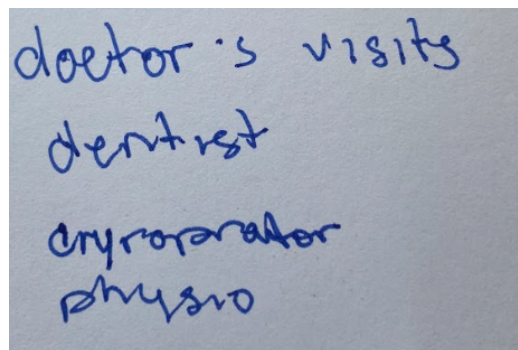 doctor's visits
dentist
cryroprator
physio